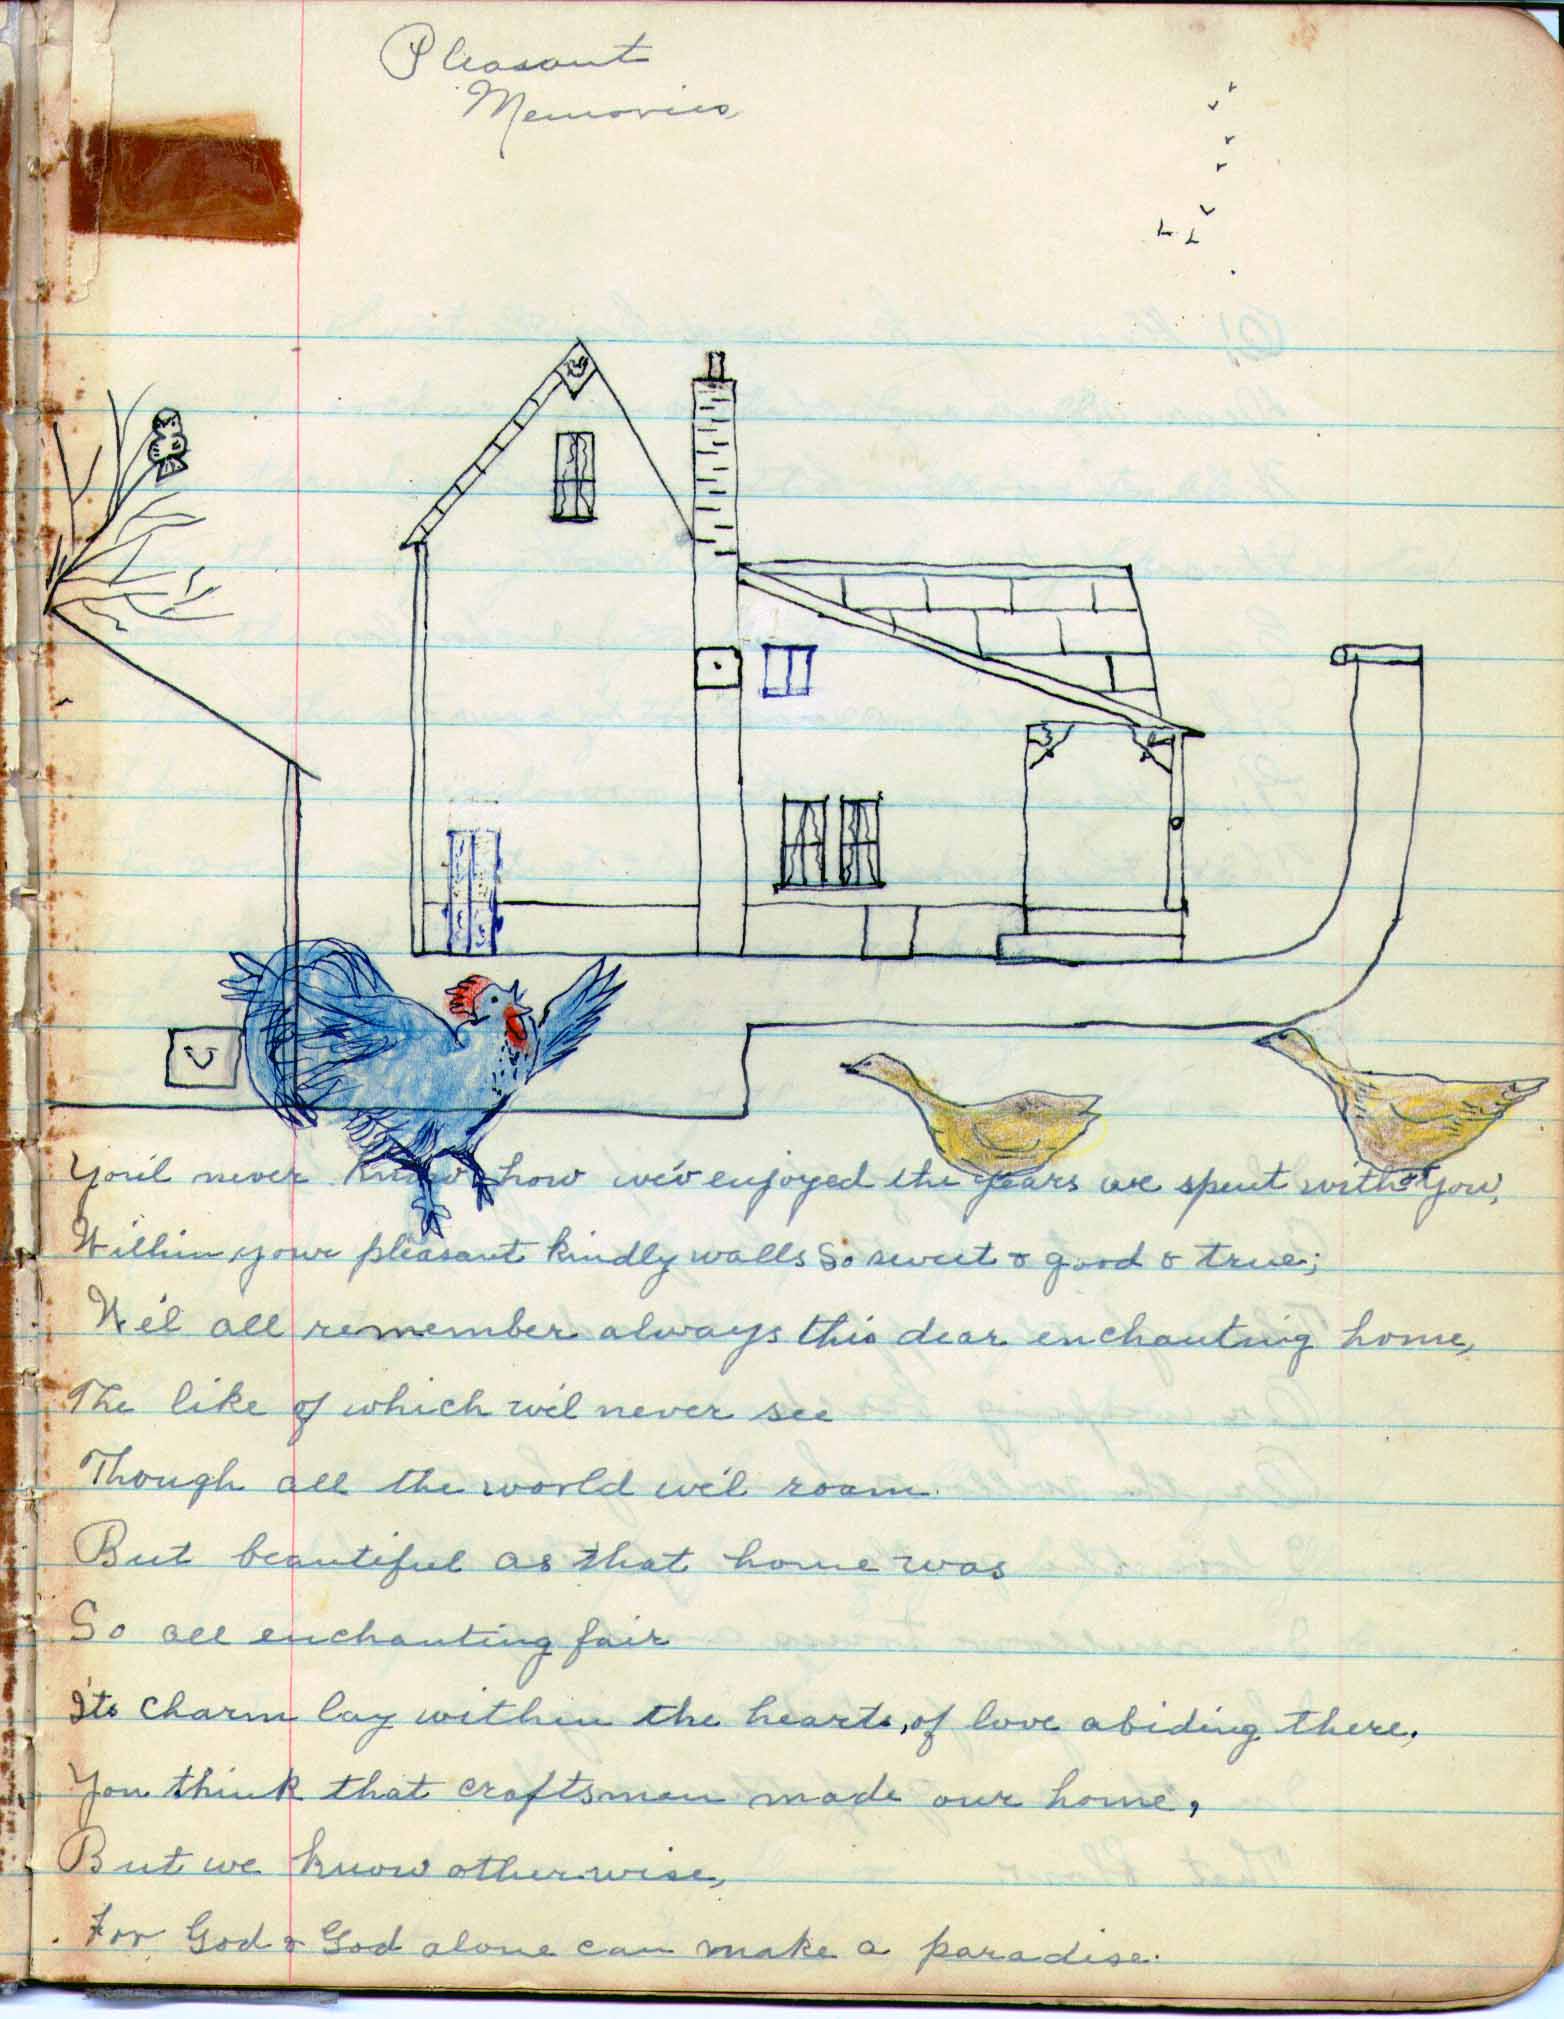 Pleasant
Memories
You'l never know how we'v enjoyed the years we spent with You,
Within your pleasant kindly walls So sweet & good & true;
We'l all remember always this dear enchanting home,
The like of which we'l never see
Though all the world we'l roam.
But beautiful as that home was
So all enchanting fair
It's charm lay within the hearts, of love abiding there.
You think that craftsmen made our home,
But we know otherwise,
For God & God alone can make a paradise.